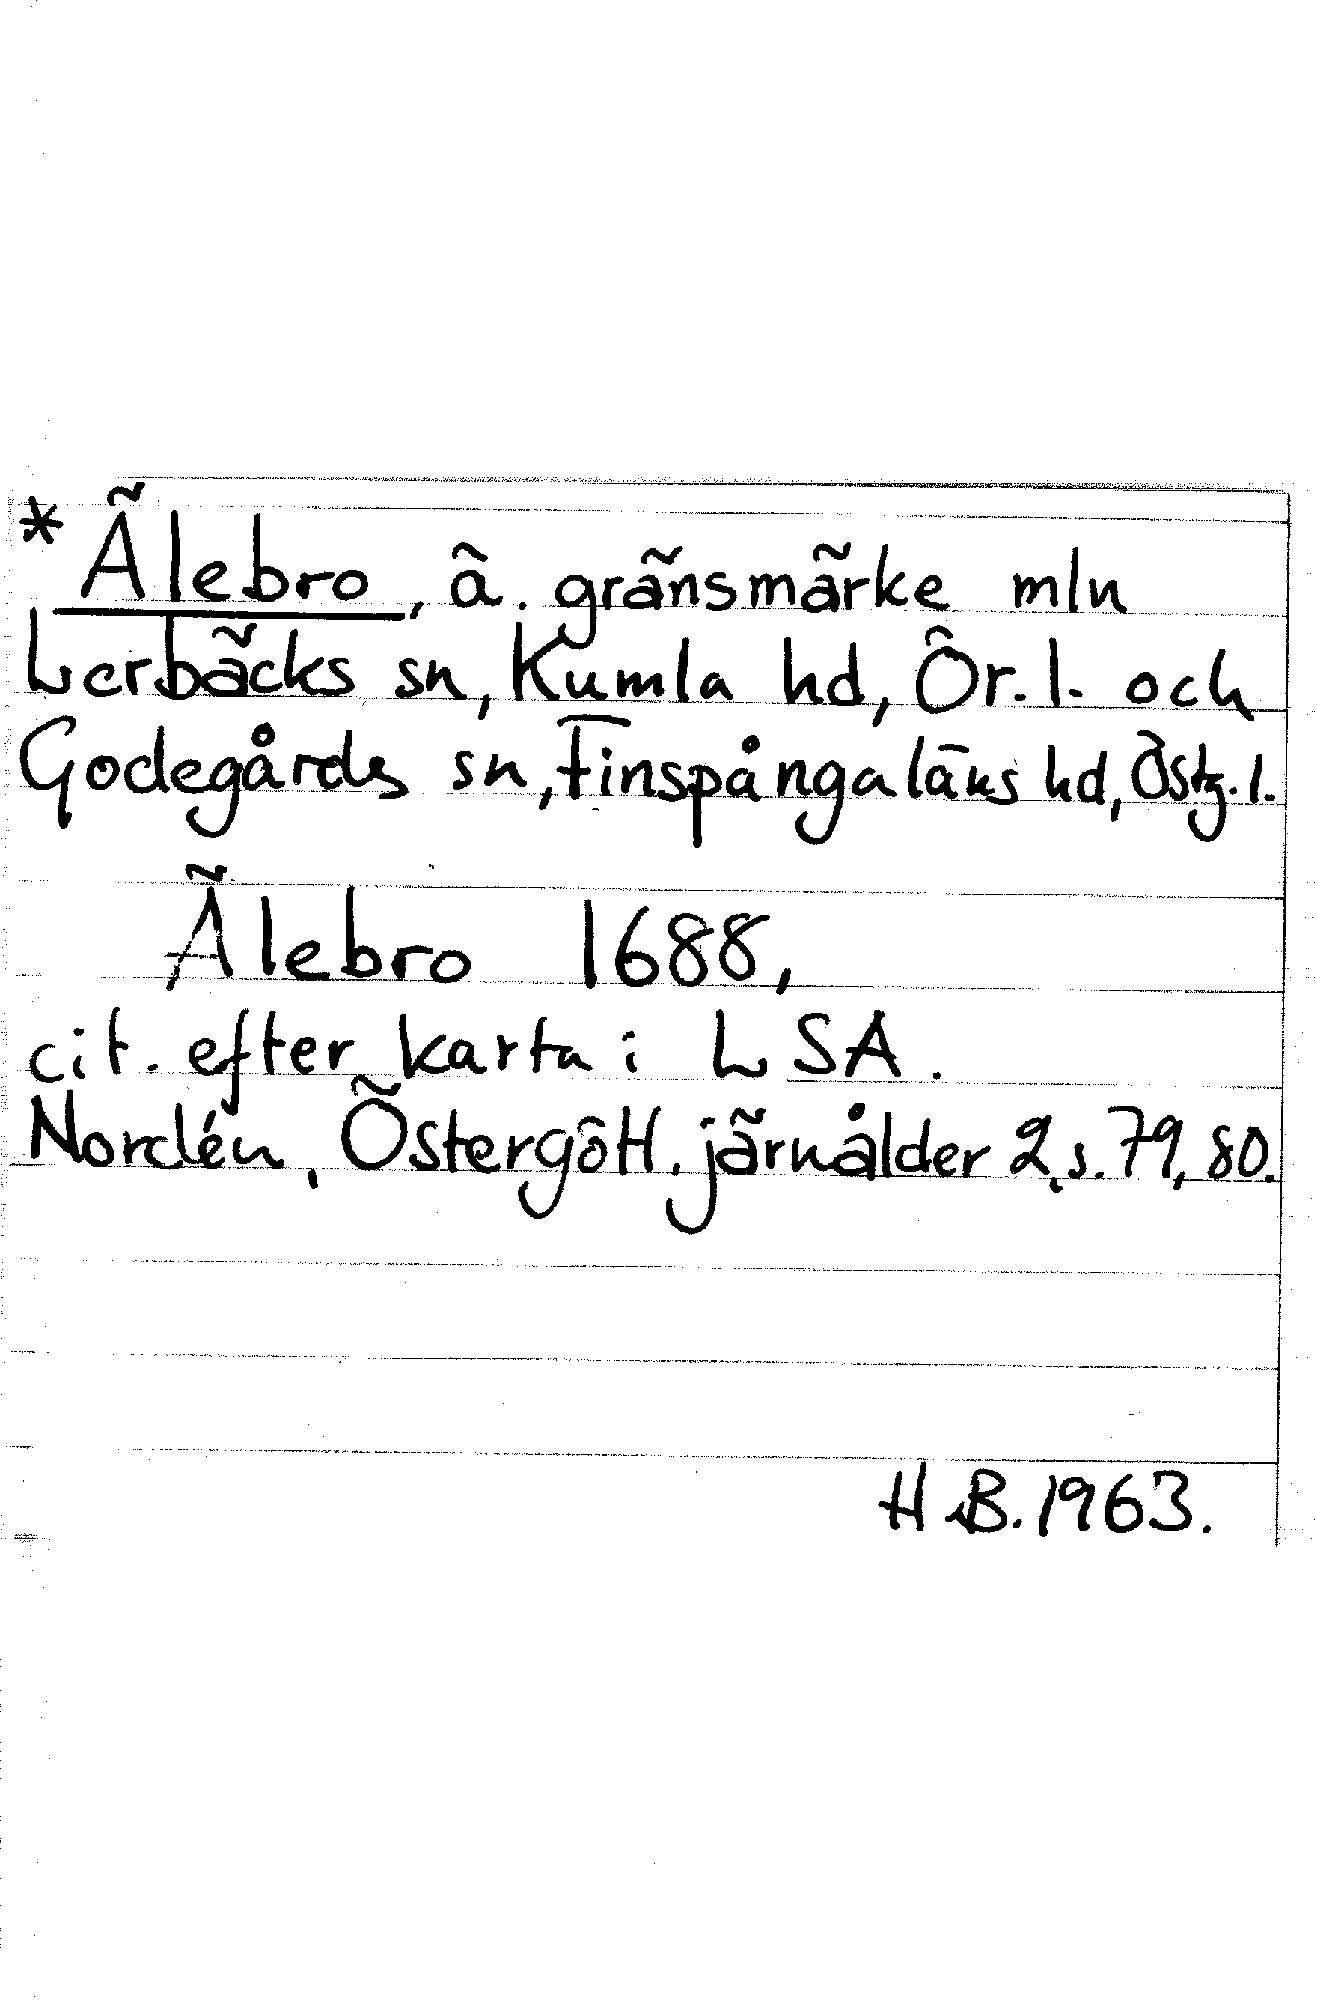 *Älebro, ä. gränsmärke mln
Lerbäcks sn, Kumla hd, Ör. l. och
Godegårds sn, Finspångaläns hd, Östg. l.
Älebro 1688,
cit. efter karta i LSA.
Nordén, Östergötl. järnålder 2, s. 79, 80.
H.B. 1963.